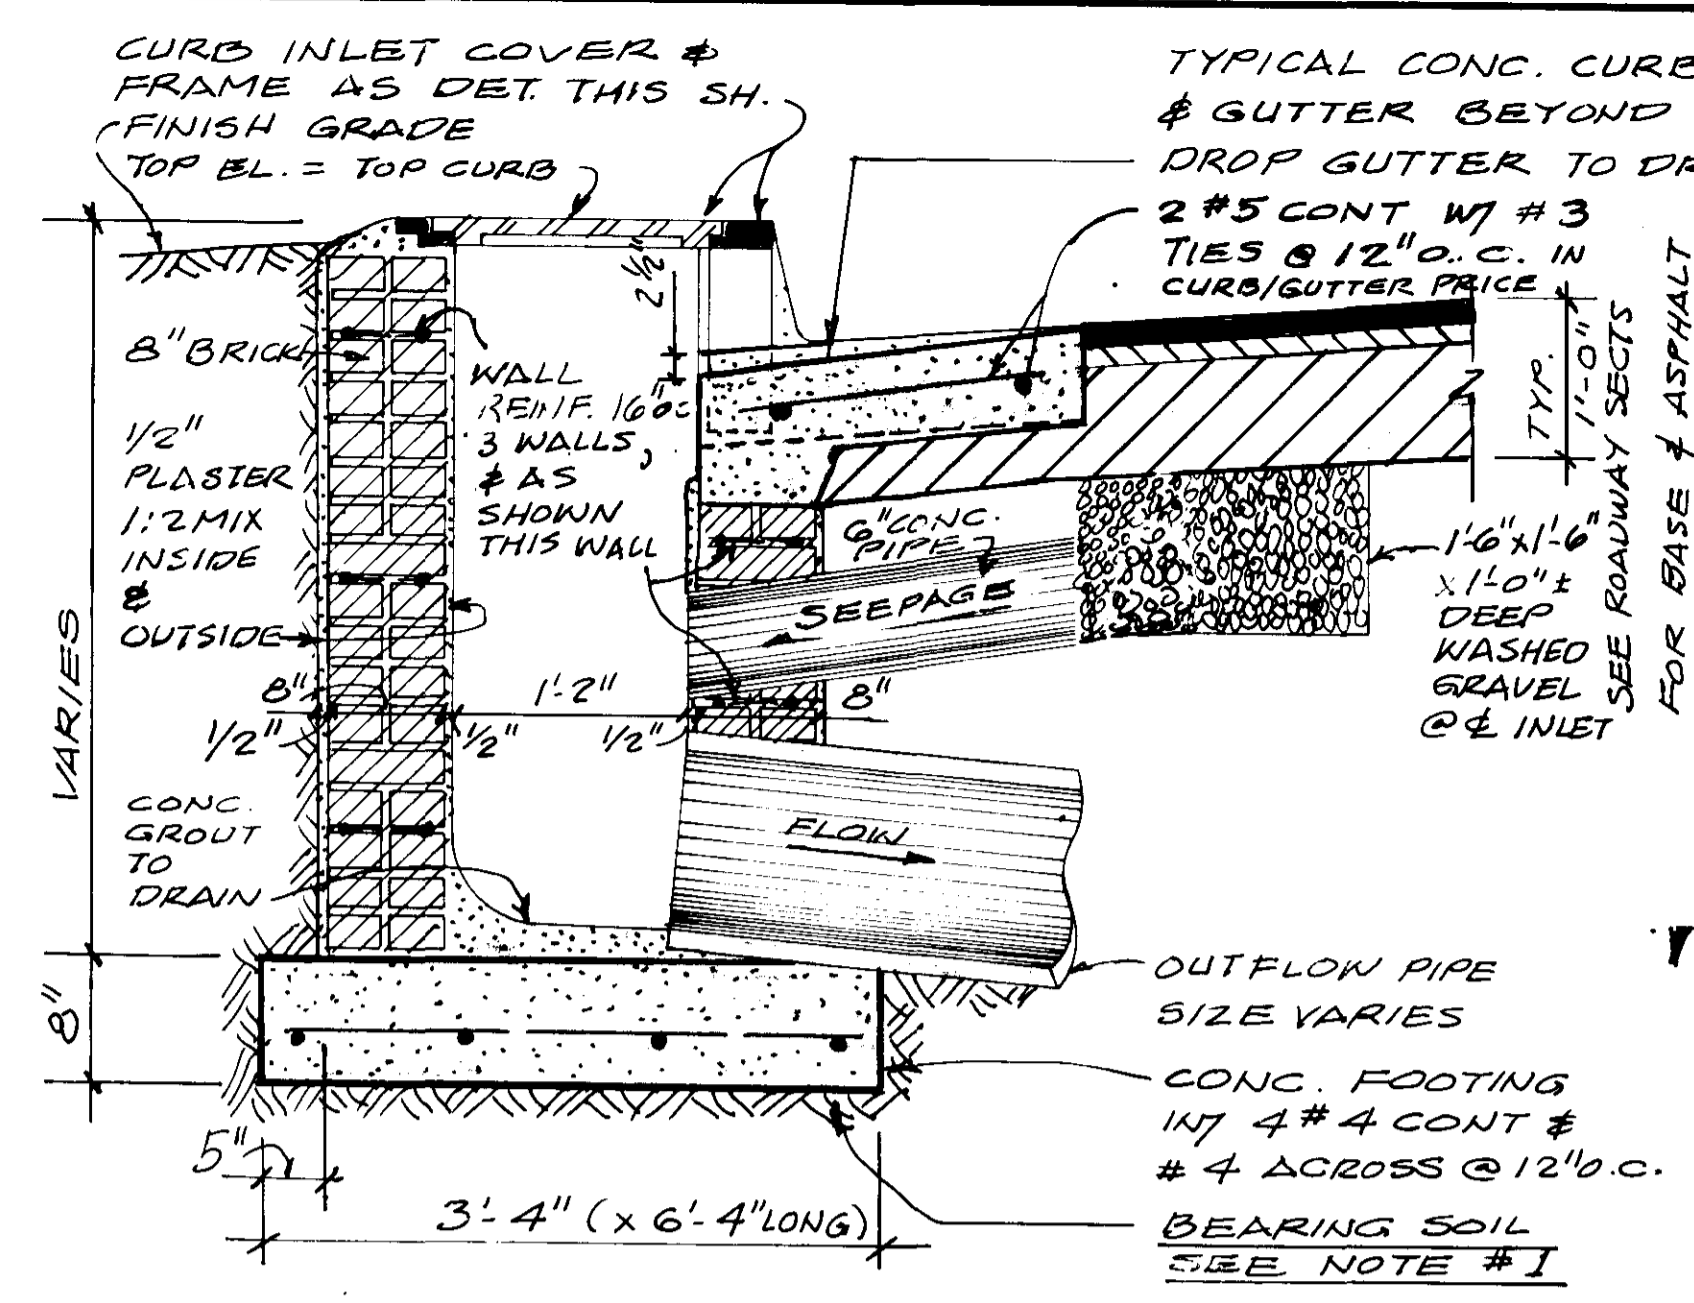 CURB INLET COVER &
FRAME AS DET. THIS SH.
FINISH GRADE
TOP EL. = TOP CURB
TYPICAL CONC. CURB
& GUTTER BEYOND
DROP GUTTER TO
2 #5 CONT W/ #3
TIES @ 12" O.C. IN
CURB/GUTTER PRICE
2 1/2"
8" BRICK
WALL
REINF. 16" OC
3 WALLS,
& AS
SHOWN
THIS WALL
1/2"
PLASTER
1:2 MIX
INSIDE
&
OUTSIDE
6" CONC.
PIPE
SEEPAGE
TYP.
1'-0"
SEE ROADWAY SECTS
FOR BASE & ASPHALT
1'-6" x 1'-6"
x 1'-0" ±
DEEP
WASHED
GRAVEL
@ ℄ INLET
VARIES
8"
1'-2"
8"
1/2"
1/2"
1/2"
CONC.
GROUT
TO
DRAIN
FLOW
OUTFLOW PIPE
SIZE VARIES
8"
CONC. FOOTING
W/ 4 #4 CONT &
#4 ACROSS @ 12" O.C.
5"
3'-4" (x 6'-4" LONG)
BEARING SOIL
SEE NOTE #1